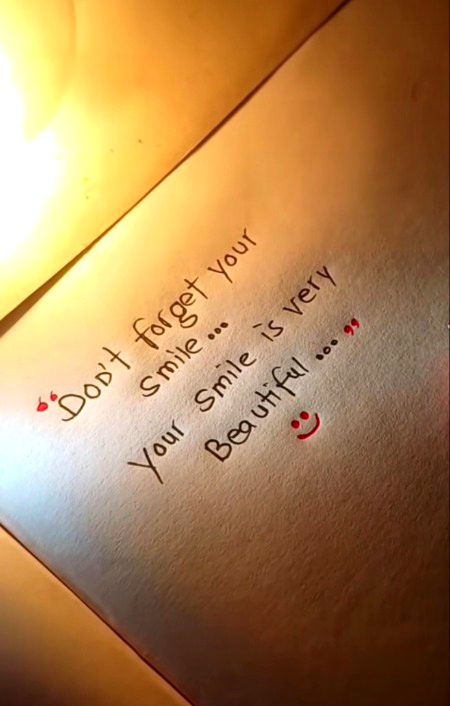 “Don't forget your
smile...
Your smile is very
Beautiful...”